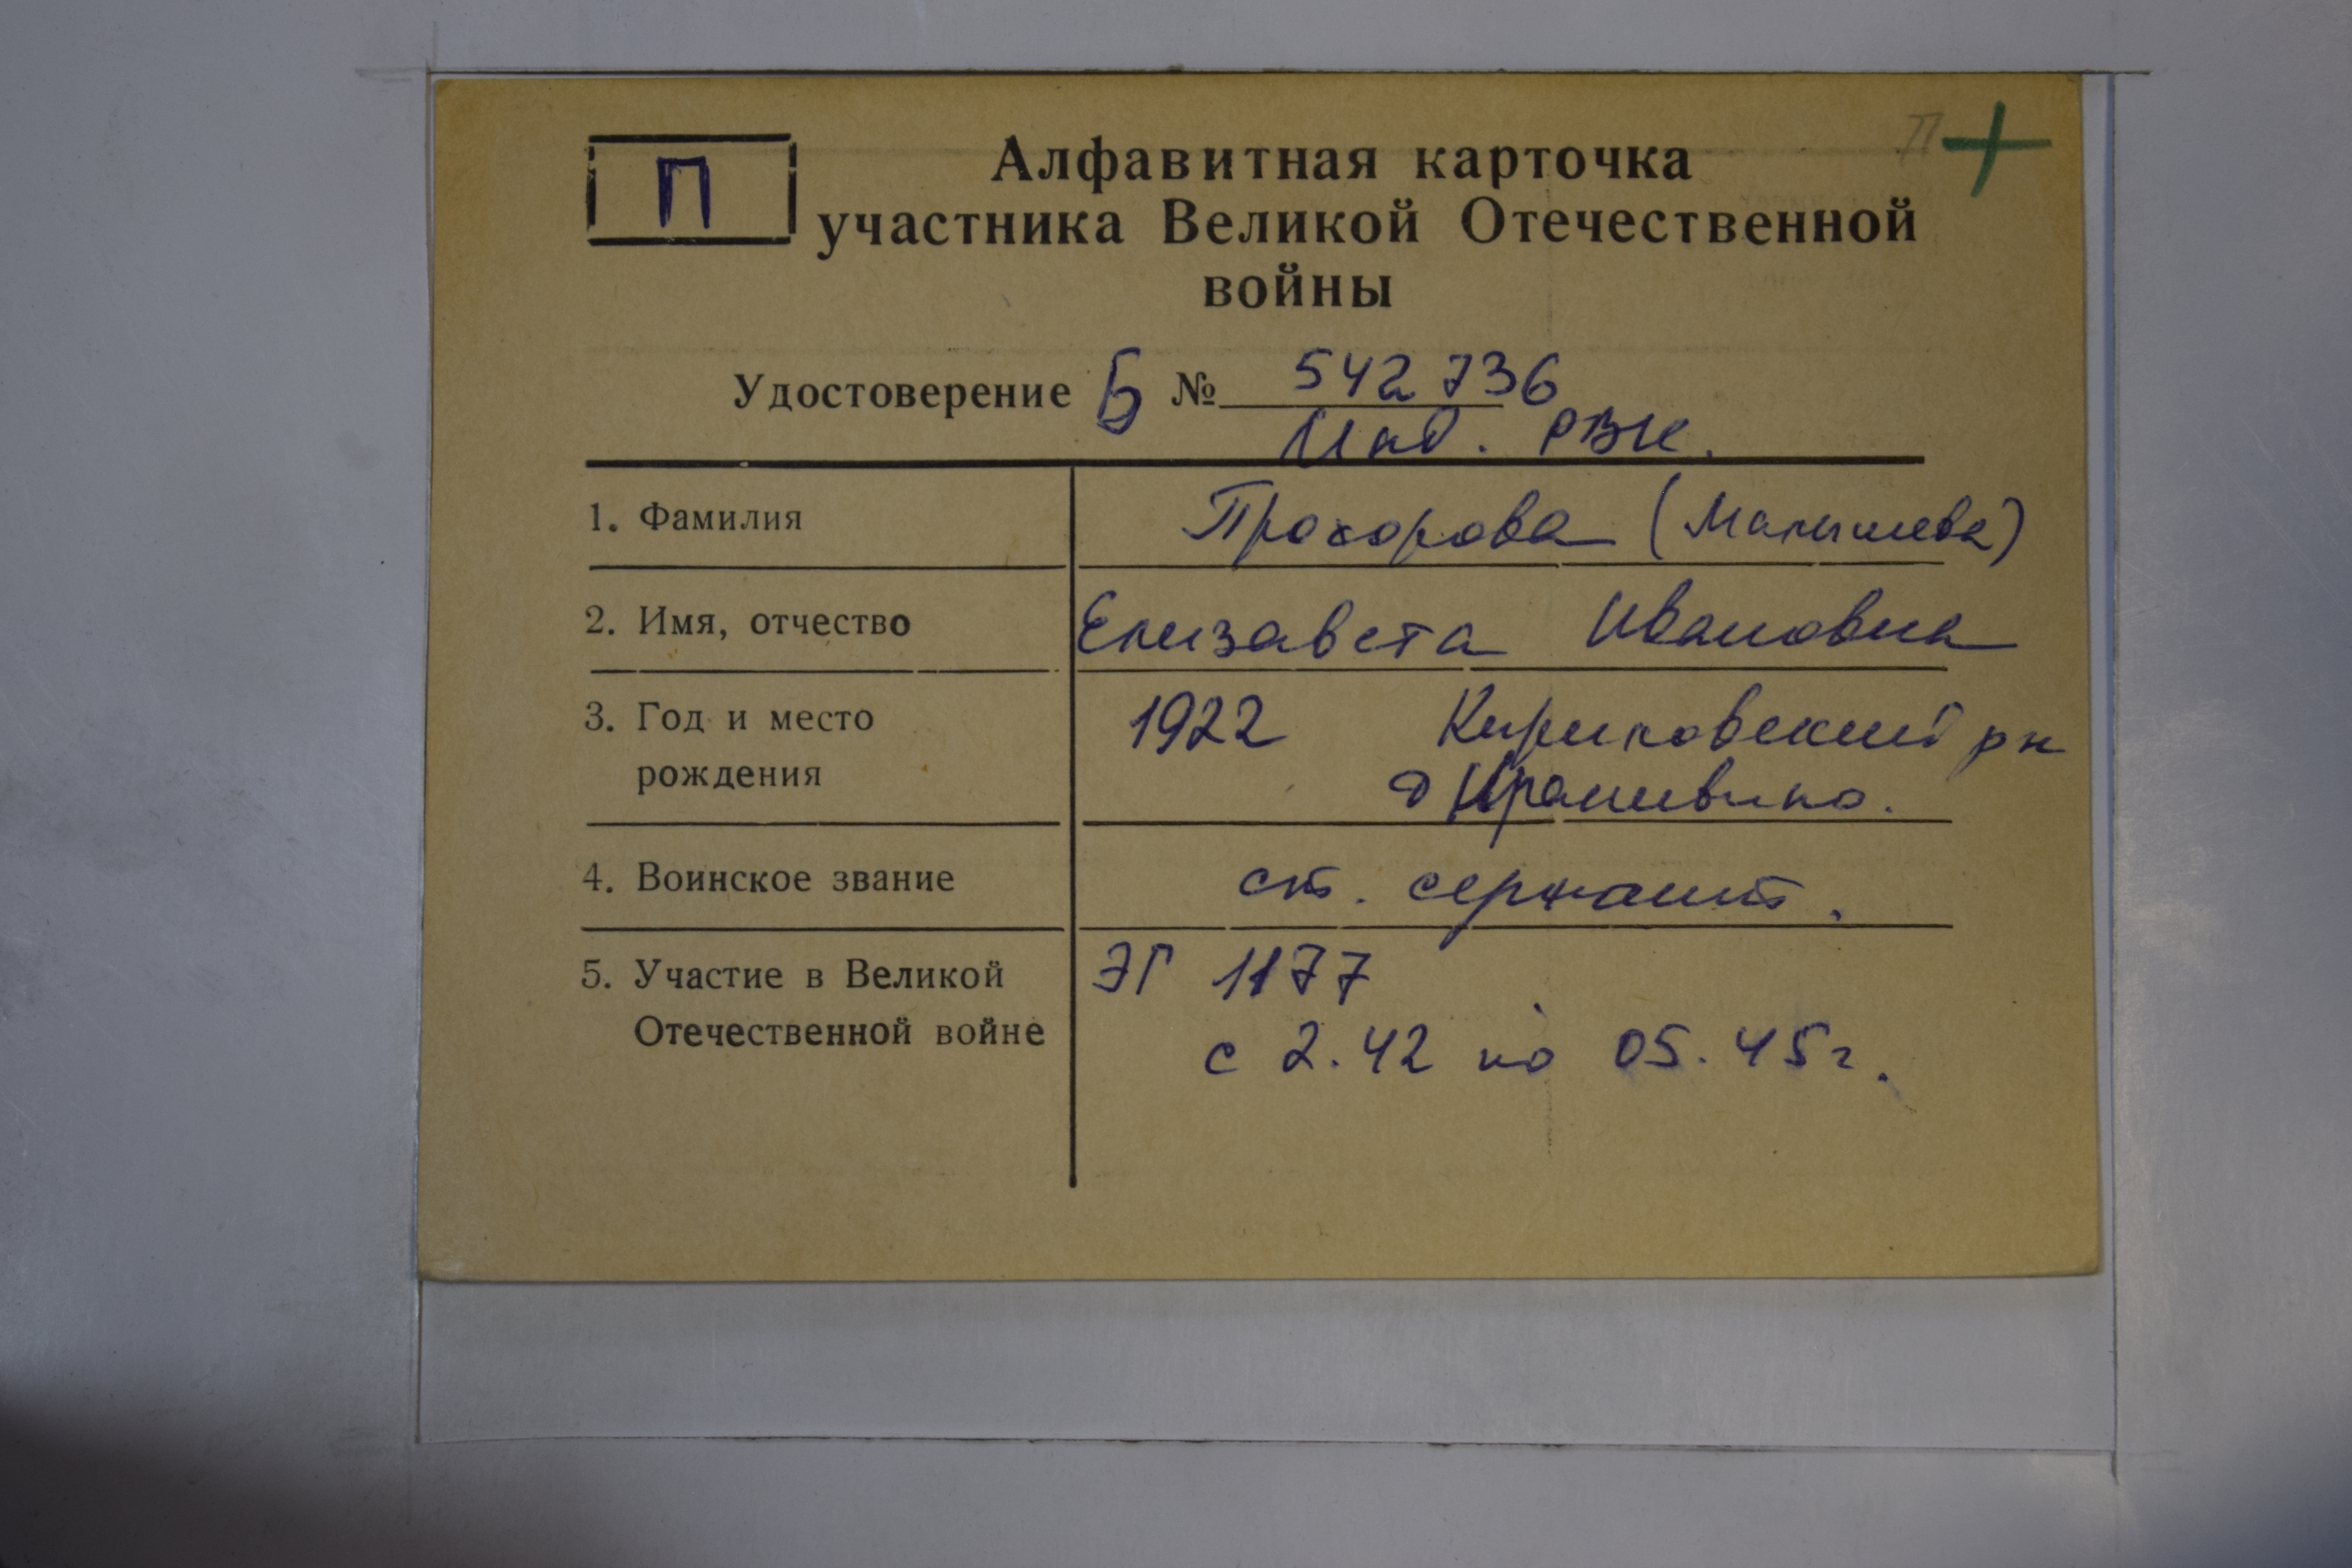 П
Алфавитная карточка
участника Великой Отечественной
войны
П +
Удостоверение Б № 542736
Инд. РВК.
1. Фамилия Прохорова (Малышева)
2. Имя, отчество Елизавета Ивановна
3. Год и место 1922 Кирилловский рн
рождения д
4. Воинское звание ст. сержант.
5. Участие в Великой ЭГ 1177
Отечественной войне с 2.42 по 05.45г.